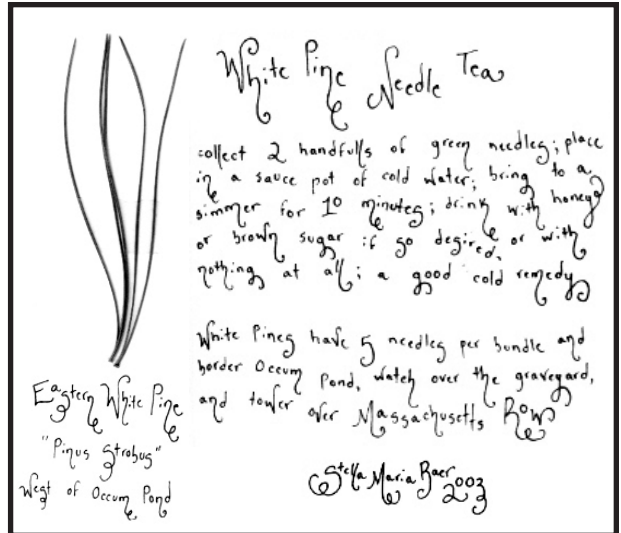 White Pine Needle Tea
collect 2 handfulls of green needles; place
in a sauce pot of cold water; bring to a
simmer for 10 minutes; drink with honey
or brown sugar if so desired, or with
nothing at all; a good cold remedy
White Pines have 5 needles per bundle and
border Occum Pond, watch over the graveyard,
and tower over Massachusetts Row
Stella Maria Baer
2003
Eastern White Pine
"Pinus Strobus"
West of Occum Pond